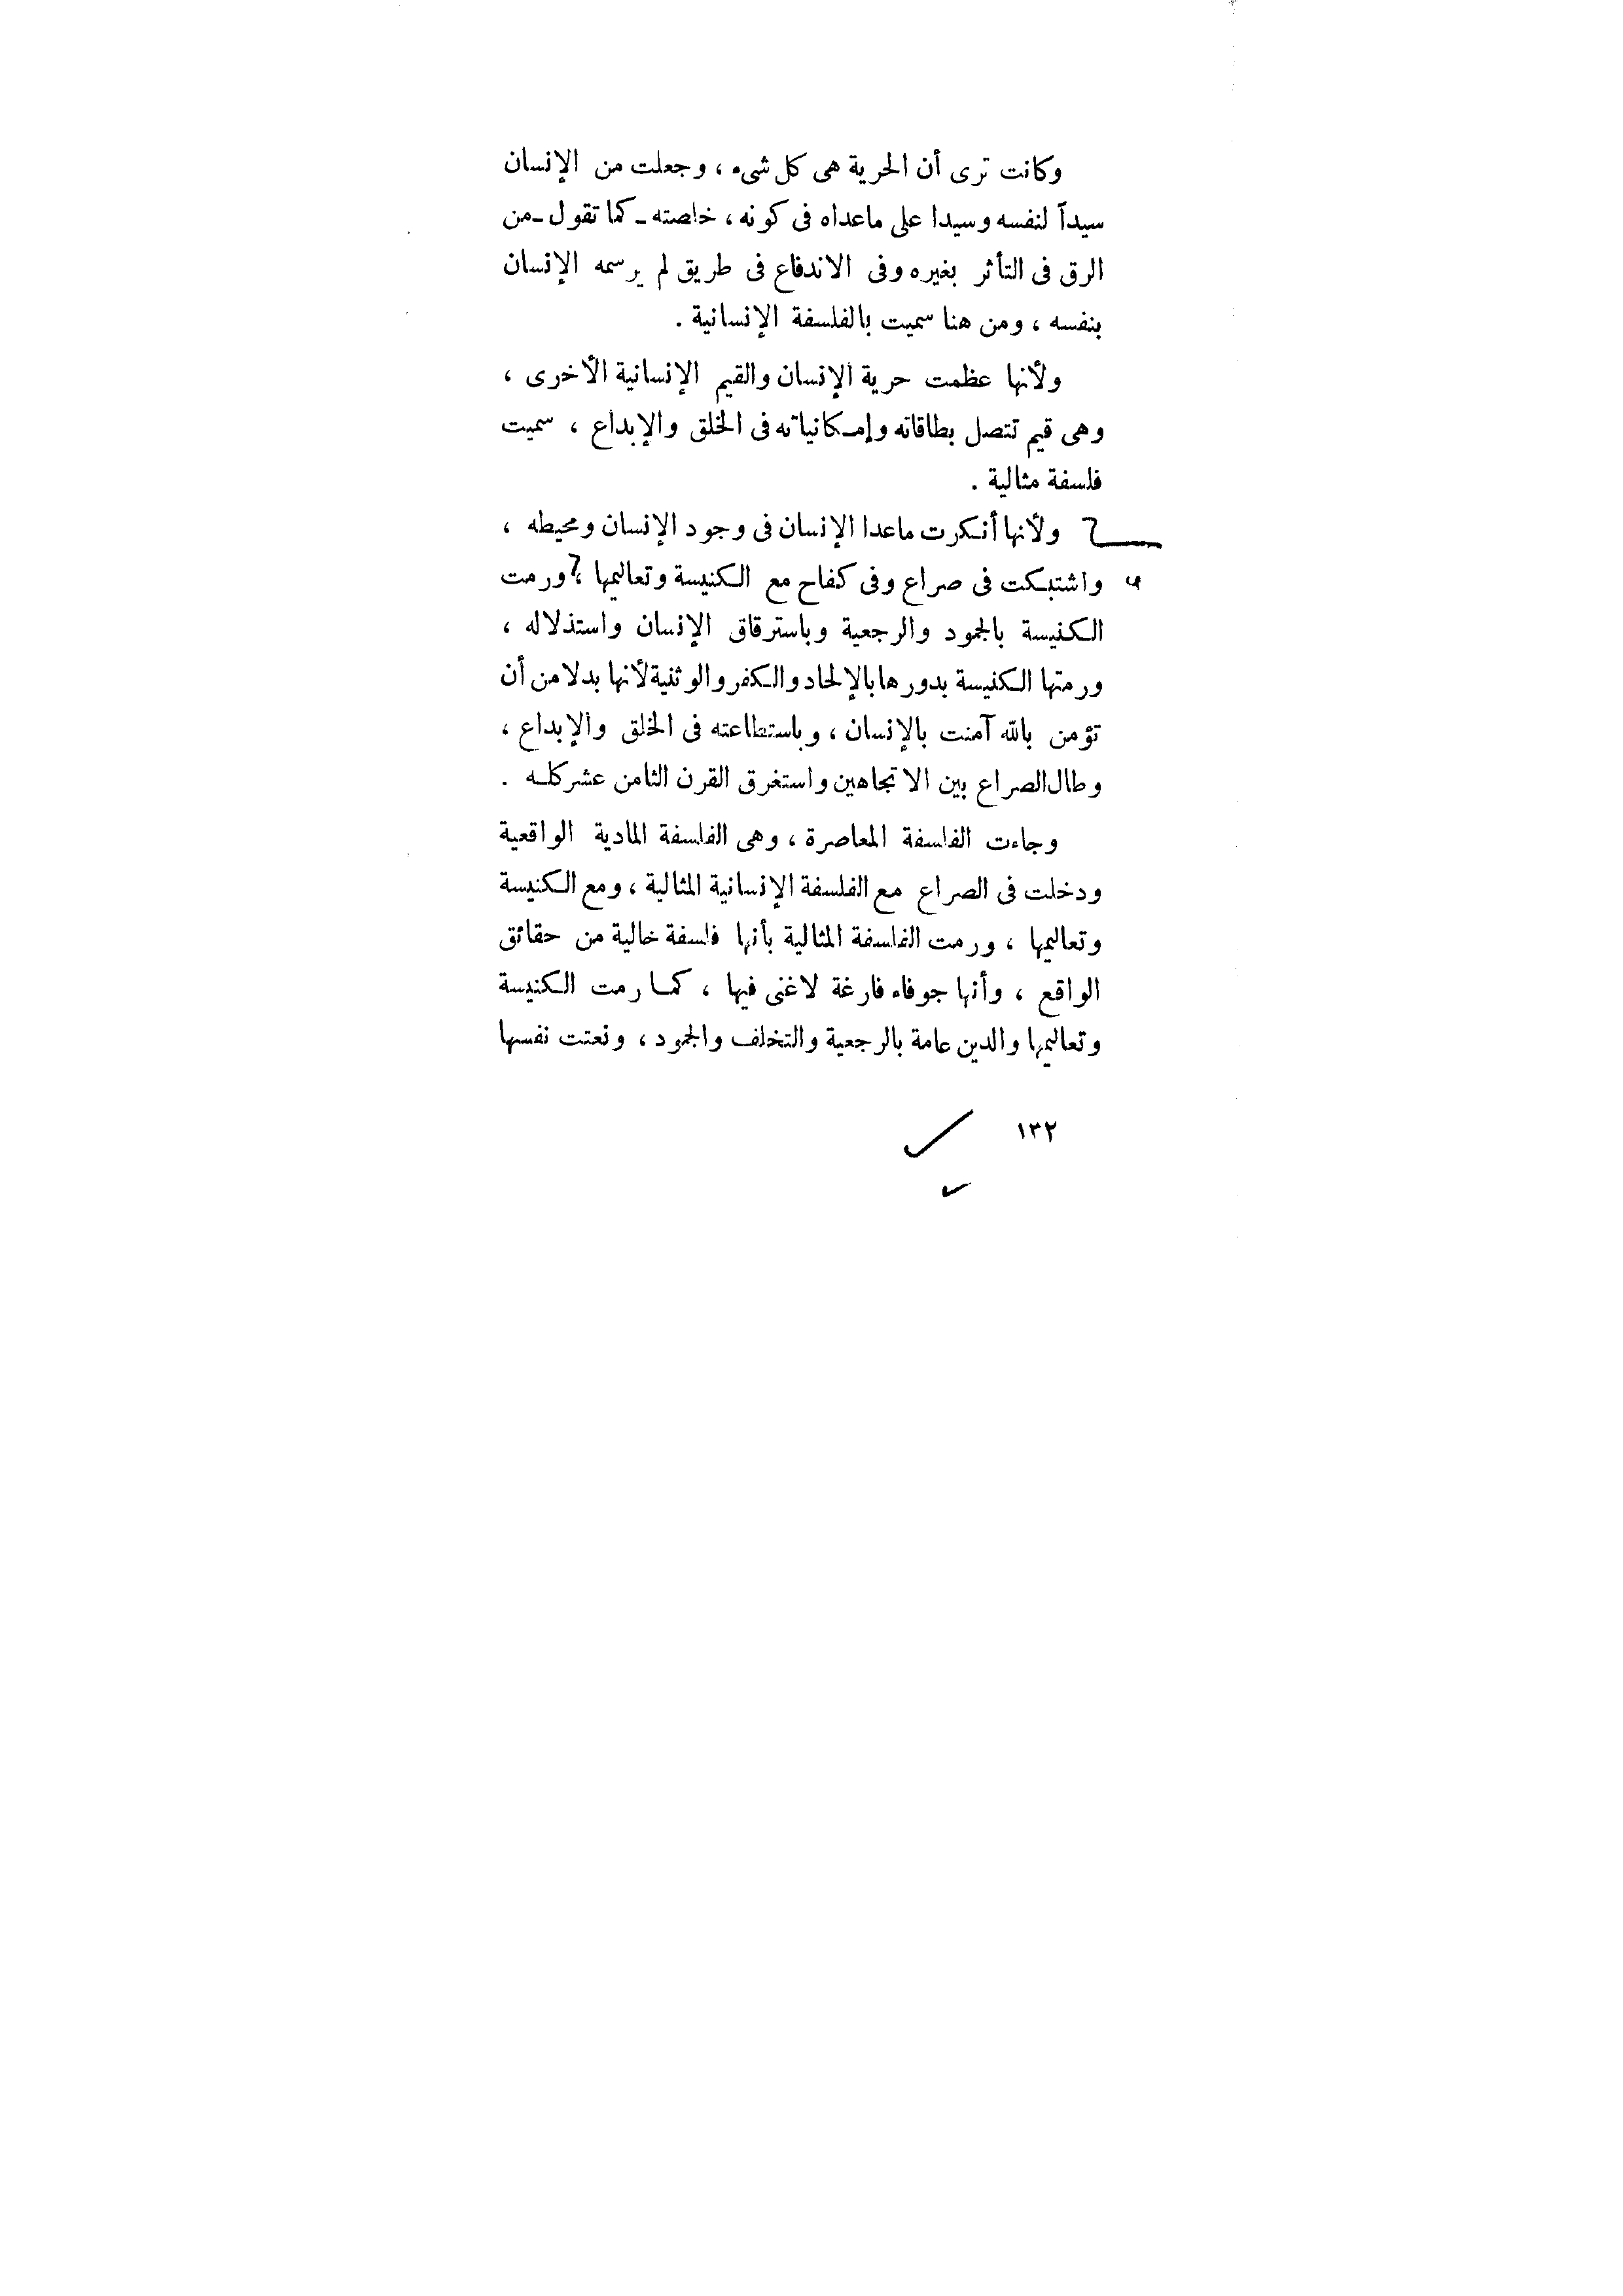 وكانت ترى أن الحرية هى كل شىء ، وجعلت من الإنسان
سيداً لنفسه وسيدا على ماعداه فى كونه ، خاصته ـ كما تقول ـ من
الرق فى التأثر بغيره وفى الاندفاع فى طريق لم يرسمه الإنسان
بنفسه ، ومن هنا سميت بالفلسفة الإنسانية .
ولأنها عظمت حرية الإنسان والقيم الإنسانية الأخرى ،
وهى قيم تتصل بطاقاته وإمكانياته فى الخلق والإبداع ، سميت
فلسفة مثالية .
ولأنها أنكرت ماعدا الإنسان فى وجود الإنسان ومحيطه ،
واشتبكت فى صراع وفى كفاح مع الكنيسة وتعاليمها ، ورمت
الكنيسة بالجمود والرجعية وباسترقاق الإنسان واستذلاله ،
ورمتها الكنيسة بدورها بالإلحاد والكفر والوثنية لأنها بدلا من أن
تؤمن بالله آمنت بالإنسان ، وباستطاعته فى الخلق والإبداع ،
وطال الصراع بين الاتجاهين واستغرق القرن الثامن عشر كله .
وجاءت الفلسفة المعاصرة ، وهى الفلسفة المادية الواقعية
ودخلت فى الصراع مع الفلسفة الإنسانية المثالية ، ومع الكنيسة
وتعاليمها ، ورمت الفلسفة المثالية بأنها فلسفة خالية من حقائق
الواقع ، وأنها جوفاء فارغة لاغنى فيها ، كما رمت الكنيسة
وتعاليمها والدين عامة بالرجعية والتخلف والجمود ، ونعتت نفسها
١٣٢